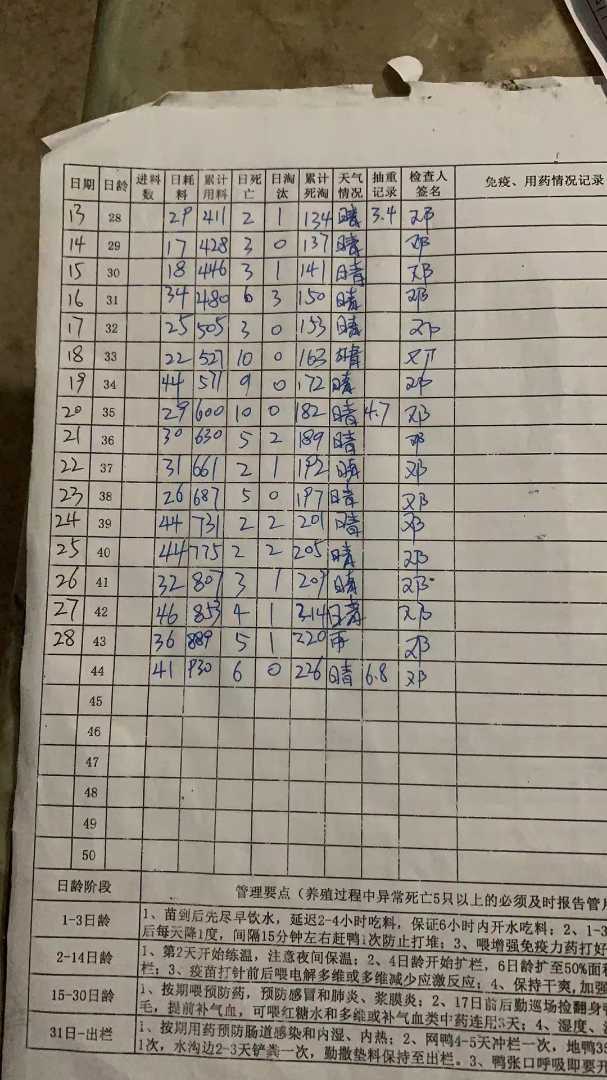 日期 日龄 进料数 日耗料 累计用料 日死亡 日淘汰 累计死淘 天气情况 抽重记录 检查人签名 免疫、用药情况记录
13 28 29 411 2 1 134 晴 3.4 邓
14 29 17 428 3 0 137 晴 邓
15 30 18 446 3 1 141 晴 邓
16 31 34 480 6 3 150 晴 邓
17 32 25 505 3 0 153 晴 邓
18 33 22 527 10 0 163 晴 邓
19 34 44 571 9 0 172 晴 邓
20 35 29 600 10 0 182 晴 4.7 邓
21 36 30 630 5 2 189 晴 邓
22 37 31 661 2 1 192 晴 邓
23 38 26 687 5 0 197 晴 邓
24 39 44 731 2 2 201 晴 邓
25 40 44 775 2 2 205 晴 邓
26 41 32 807 3 1 209 晴 邓
27 42 46 853 4 1 214 晴 邓
28 43 36 889 5 1 220 雨 邓
44 41 930 6 0 226 晴 6.8 邓
45
46
47
48
49
50
日龄阶段 管理要点（养殖过程中异常死亡5只以上的必须及时报告管
1-3日龄 1、苗到后先尽早饮水，延迟2-4小时吃料，保证6小时内开水吃料；2、1-3
后每天降1度，间隔15分钟左右赶鸭1次防止打堆；3、喂增强免疫力药打好
2-14日龄 1、第2天开始练温，注意夜间保温；2、4日龄开始扩栏，6日龄扩至50%面积
栏；3、疫苗打针前后喂电解多维或多维减少应激反应；4、保持干爽，加强
15-30日龄 1、按期喂预防药，预防感冒和肺炎、浆膜炎；2、17日前后勤巡场捡翻身鸭
毛，提前补气血，可喂红糖水和多维或补气血类中药连用3天；4、湿度、
31日-出栏 1、按期用药预防肠道感染和内湿、内热；2、网鸭4-5天冲栏一次，地鸭35
1次，水沟边2-3天铲粪一次，勤撒垫料保持至出栏。3、鸭张口呼吸即要开